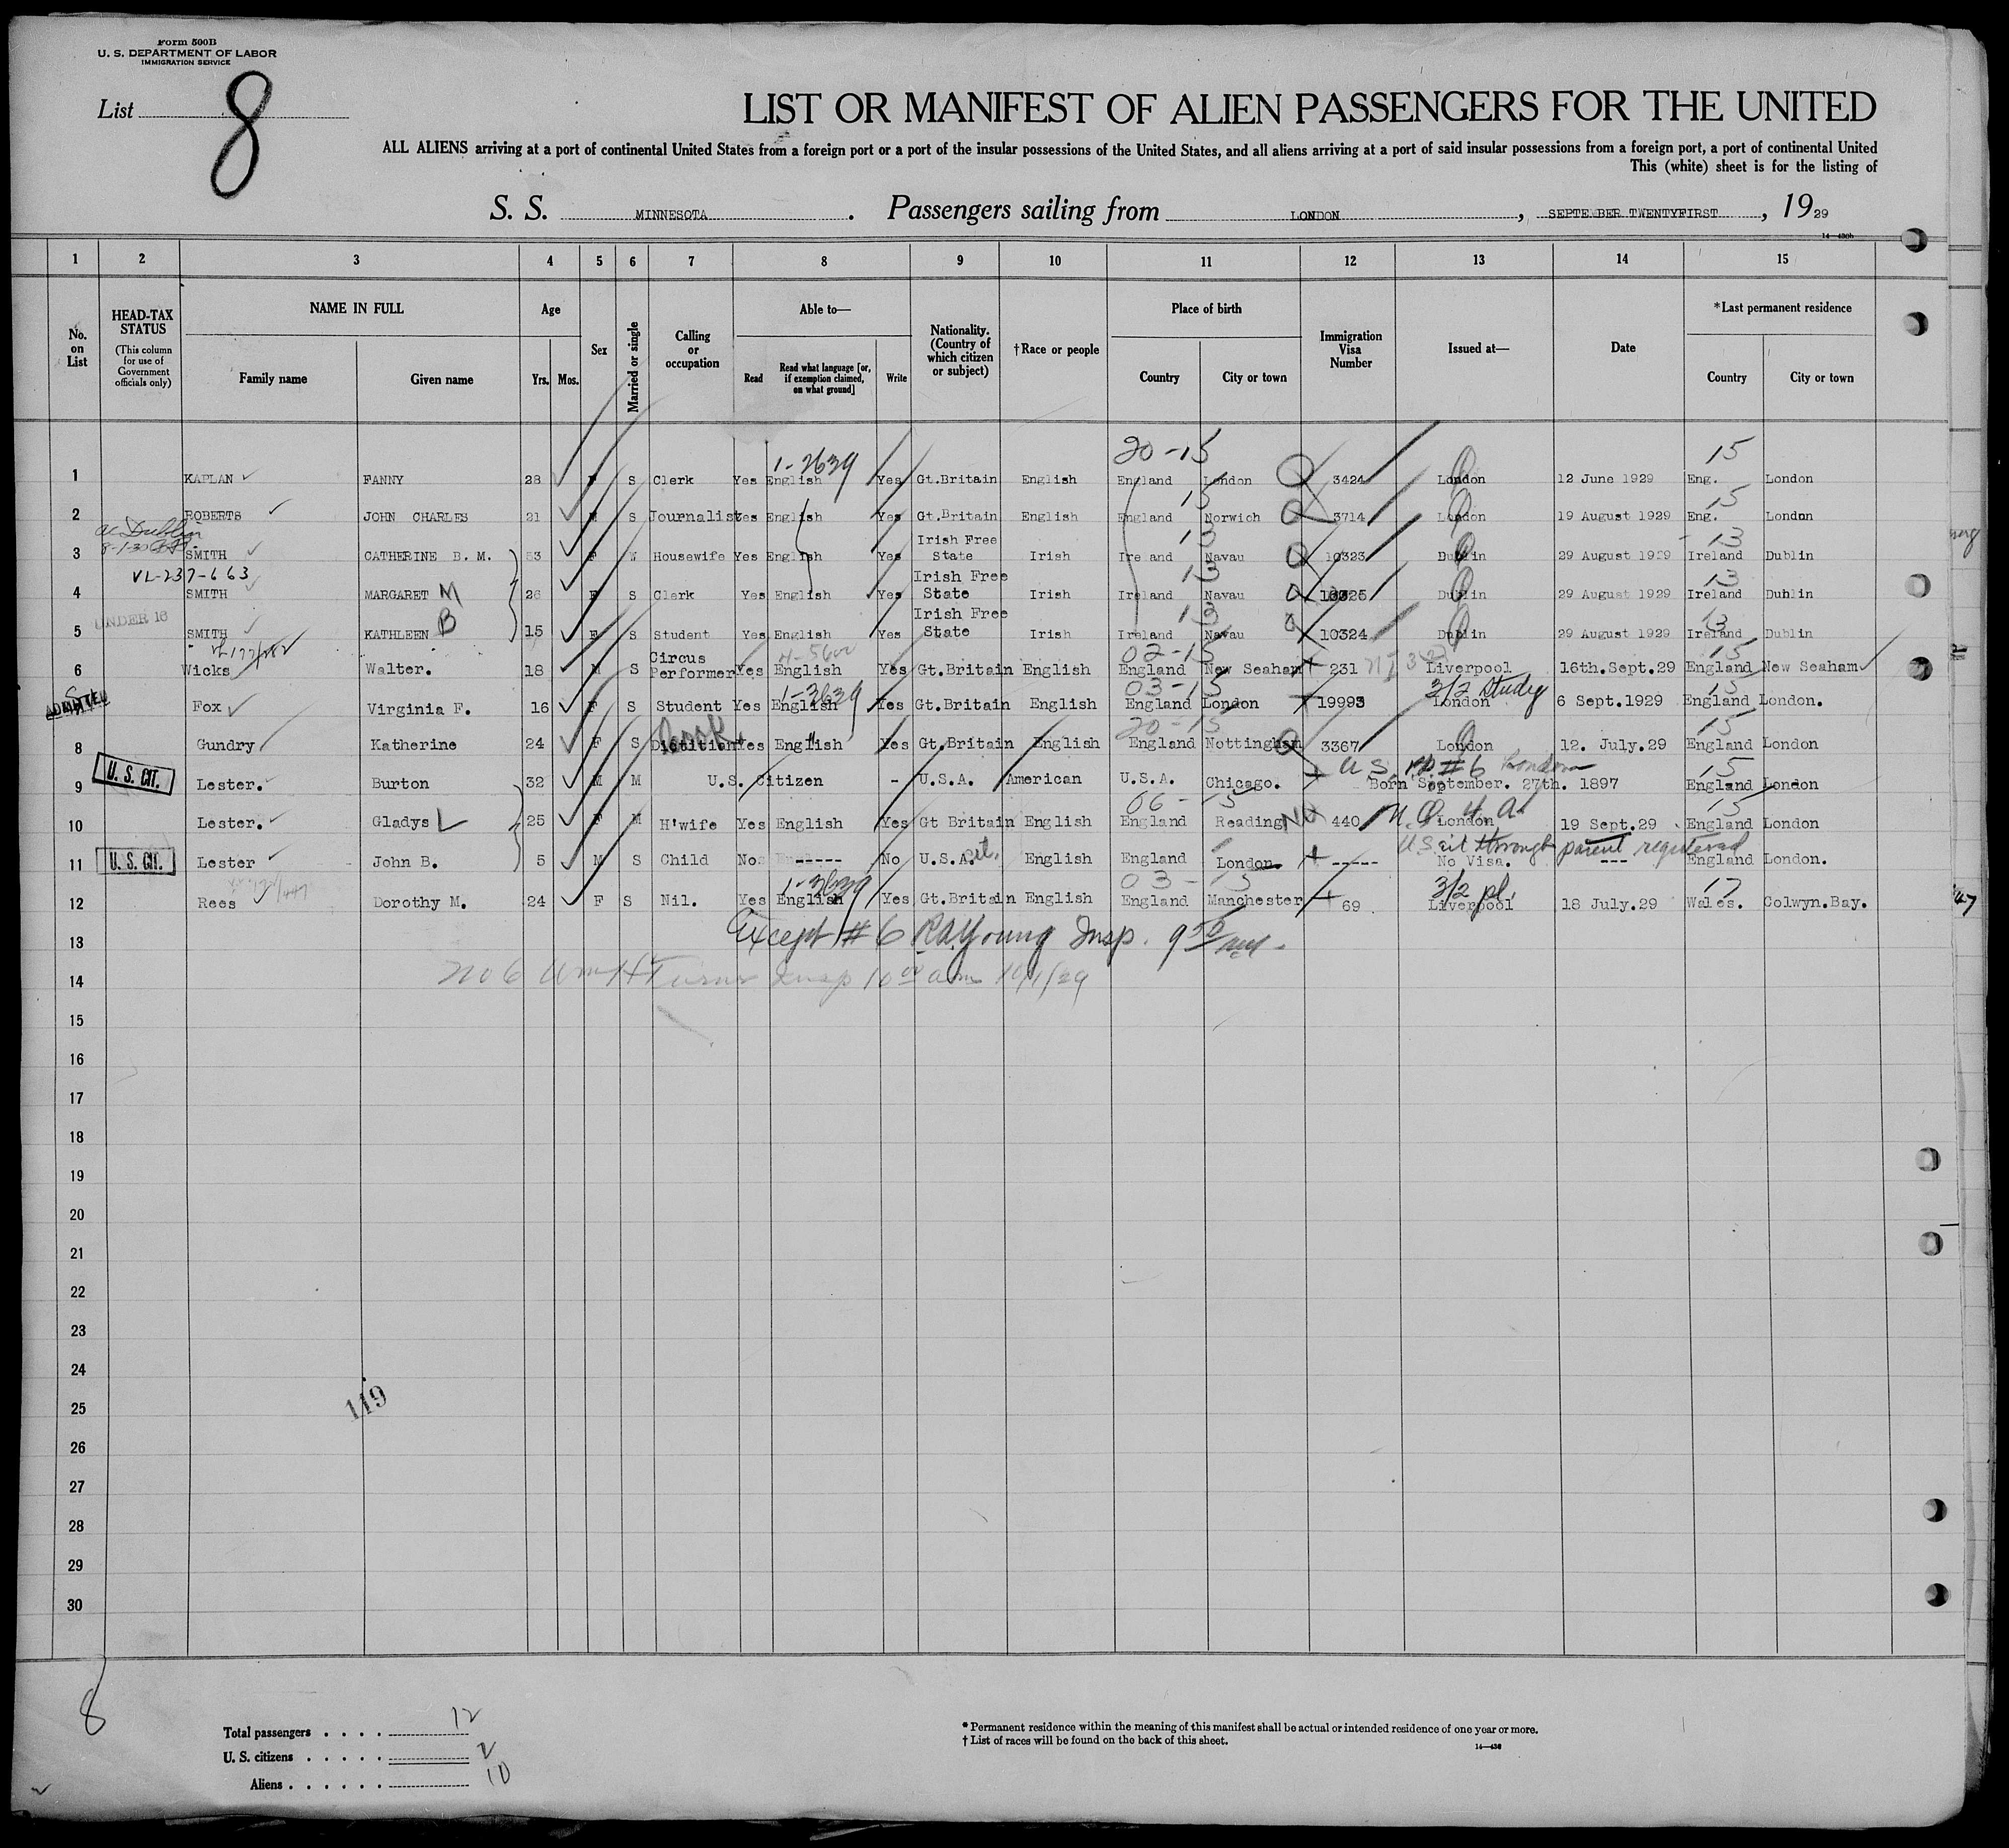 Form 500B
U. S. DEPARTMENT OF LABOR
IMMIGRATION SERVICE
List 8
LIST OR MANIFEST OF ALIEN PASSENGERS FOR THE UNITED
ALL ALIENS arriving at a port of continental United States from a foreign port or a port of the insular possessions of the United States, and all aliens arriving at a port of said insular possessions from a foreign port, a port of continental United
This (white) sheet is for the listing of
S. S. MINNESOTA. Passengers sailing from LONDON, SEPTEMBER TWENTYFIRST, 1929
1 2 3 4 5 6 7 8 9 10 11 12 13 14 15
No. on List
HEAD-TAX STATUS
(This column for use of Government officials only)
NAME IN FULL
Family name Given name
Age
Yrs. Mos.
Sex
Married or single
Calling or occupation
Able to—
Read Read what language [or, if exemption claimed, on what ground] Write
Nationality. (Country of which citizen or subject)
†Race or people
Place of birth
Country City or town
Immigration Visa Number
Issued at—
Date
*Last permanent residence
Country City or town
1-2639 20-15 15
1 KAPLAN FANNY 28 F S Clerk Yes English Yes Gt.Britain English England London 3424 London 12 June 1929 Eng. London
15 15
2 ROBERTS JOHN CHARLES 21 M S Journalist Yes English Yes Gt.Britain English England Norwich 3714 London 19 August 1929 Eng. London
Dublin
13 13
3 SMITH CATHERINE B. M. 53 F W Housewife Yes English Yes Irish Free State Irish Ireland Navau 10323 Dublin 29 August 1929 Ireland Dublin
VL-237-663 13 13
4 SMITH MARGARET M 26 F S Clerk Yes English Yes Irish Free State Irish Ireland Navau 10325 Dublin 29 August 1929 Ireland Dublin
UNDER 16 13 13
5 SMITH KATHLEEN B 15 F S Student Yes English Yes Irish Free State Irish Ireland Navau 10324 Dublin 29 August 1929 Ireland Dublin
02-15 15
6 Wicks Walter. 18 M S Circus Performer Yes English Yes Gt.Britain English England New Seaham 231 Liverpool 16th.Sept.29 England New Seaham
ADMITTED 1-3639 03-15 3/2 Study 15
Fox Virginia F. 16 F S Student Yes English Yes Gt.Britain English England London 19993 London 6 Sept.1929 England London.
Cook 20-15 15
8 Gundry Katherine 24 F S Dietitian Yes English Yes Gt.Britain English England Nottingham 3367 London 12. July.29 England London
U. S. CIT. U.S. PP #6 London 15
9 Lester. Burton 32 M M U.S. Citizen - U.S.A. American U.S.A. Chicago. Born September. 27th. 1897 England London
06-15 15
10 Lester. Gladys L 25 F M H'wife Yes English Yes Gt Britain English England Reading 440 London 19 Sept.29 England London
U.S. cit through parent registered
11 U. S. CIT. Lester John B. 5 M S Child No ----- No U.S.A. cit. English England London ----- No Visa. --- England London.
1-3639 03-15 3/2 pl. 17
12 Rees Dorothy M. 24 F S Nil. Yes English Yes Gt.Britain English England Manchester 69 Liverpool 18 July.29 Wales. Colwyn.Bay.
13 Except #6 R A Young Insp.
14 No 6 Wm H Turner Insp 10 00 am 10/1/29
15
16
17
18
19
20
21
22
23
24
25
119
26
27
28
29
30
8
Total passengers 12
U. S. citizens 2
Aliens 10
* Permanent residence within the meaning of this manifest shall be actual or intended residence of one year or more.
† List of races will be found on the back of this sheet.